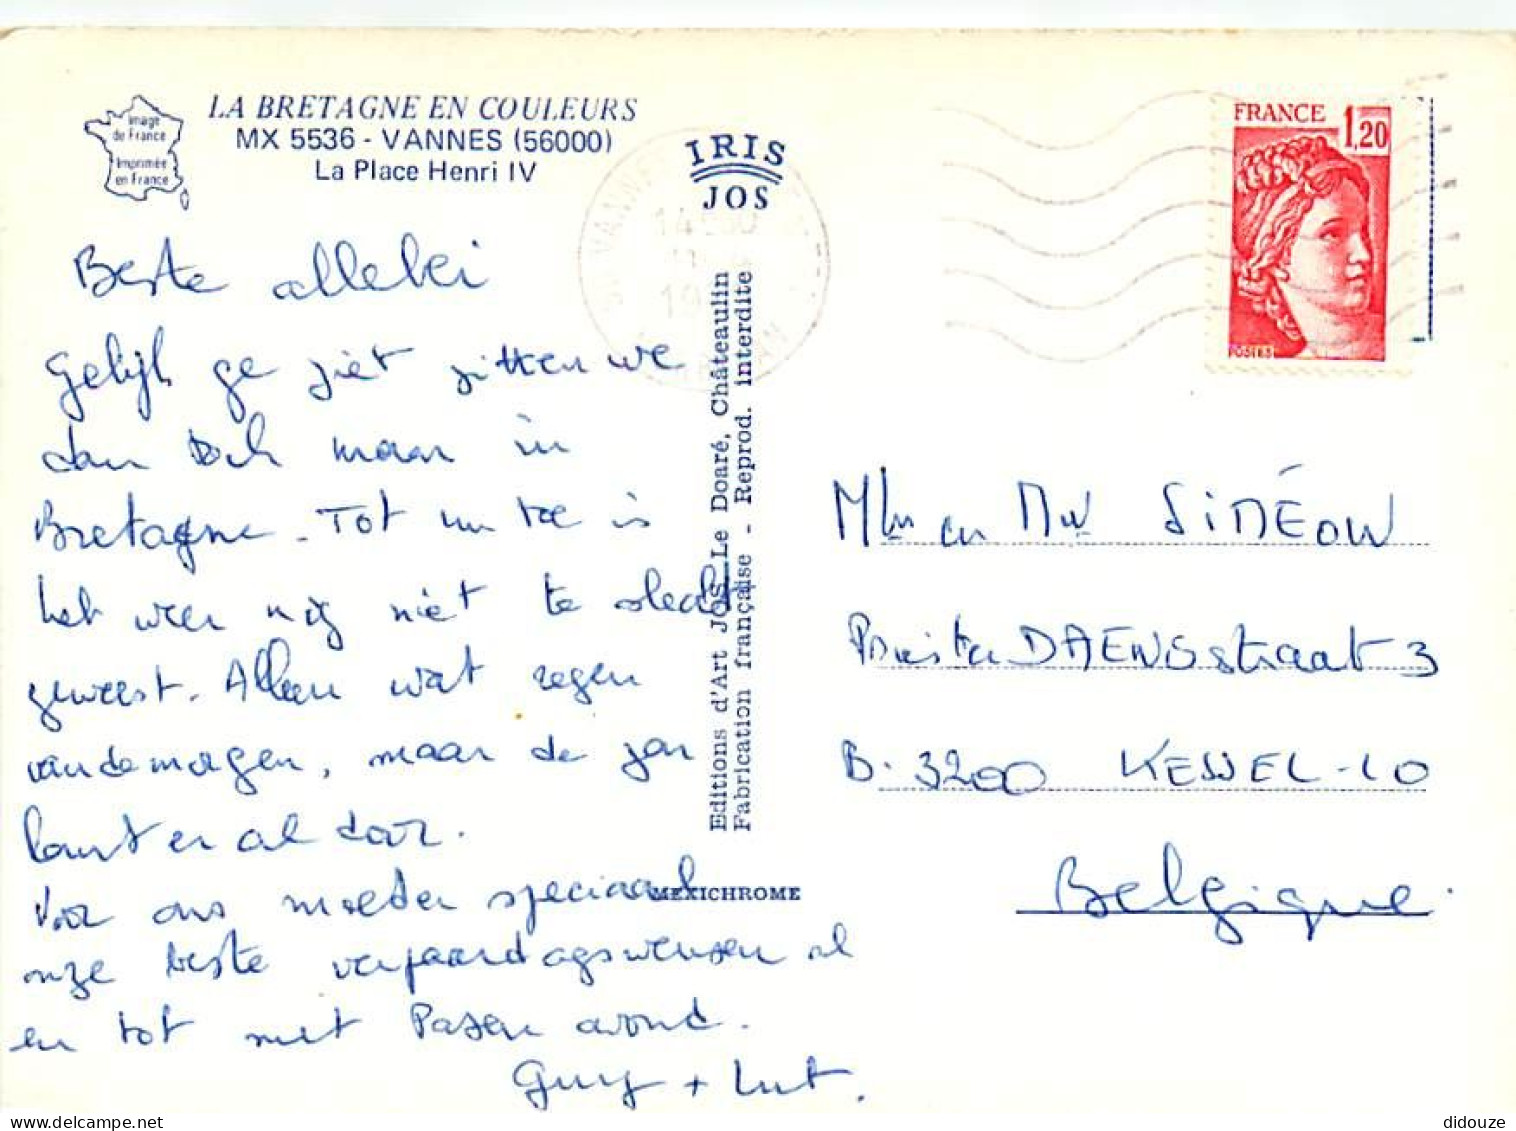 Image
de France
Imprimée
en France
LA BRETAGNE EN COULEURS
MX 5536 - VANNES (56000)
La Place Henri IV
IRIS
JOS
FRANCE 1,20
POSTES
Beste allebei
Gelijk ge ziet zitten we
dan toch maar in
Bretagne. Tot nu toe is
het weer nog niet te slecht
geweest. Alleen wat regen
vandemorgen, maar de zon
komt er al door.
Voor ons moeder speciaal
onze beste verjaardagswensen al
en tot met Pasen avond.
Guy + Lut.
Editions d'Art JOS Le Doaré, Châteaulin
Fabrication française - Reprod. interdite
MEXICHROME
en SIMÉON
Priester DAENSstraat 3
B. 3200 KESSEL-LO
Belgique.
didouze